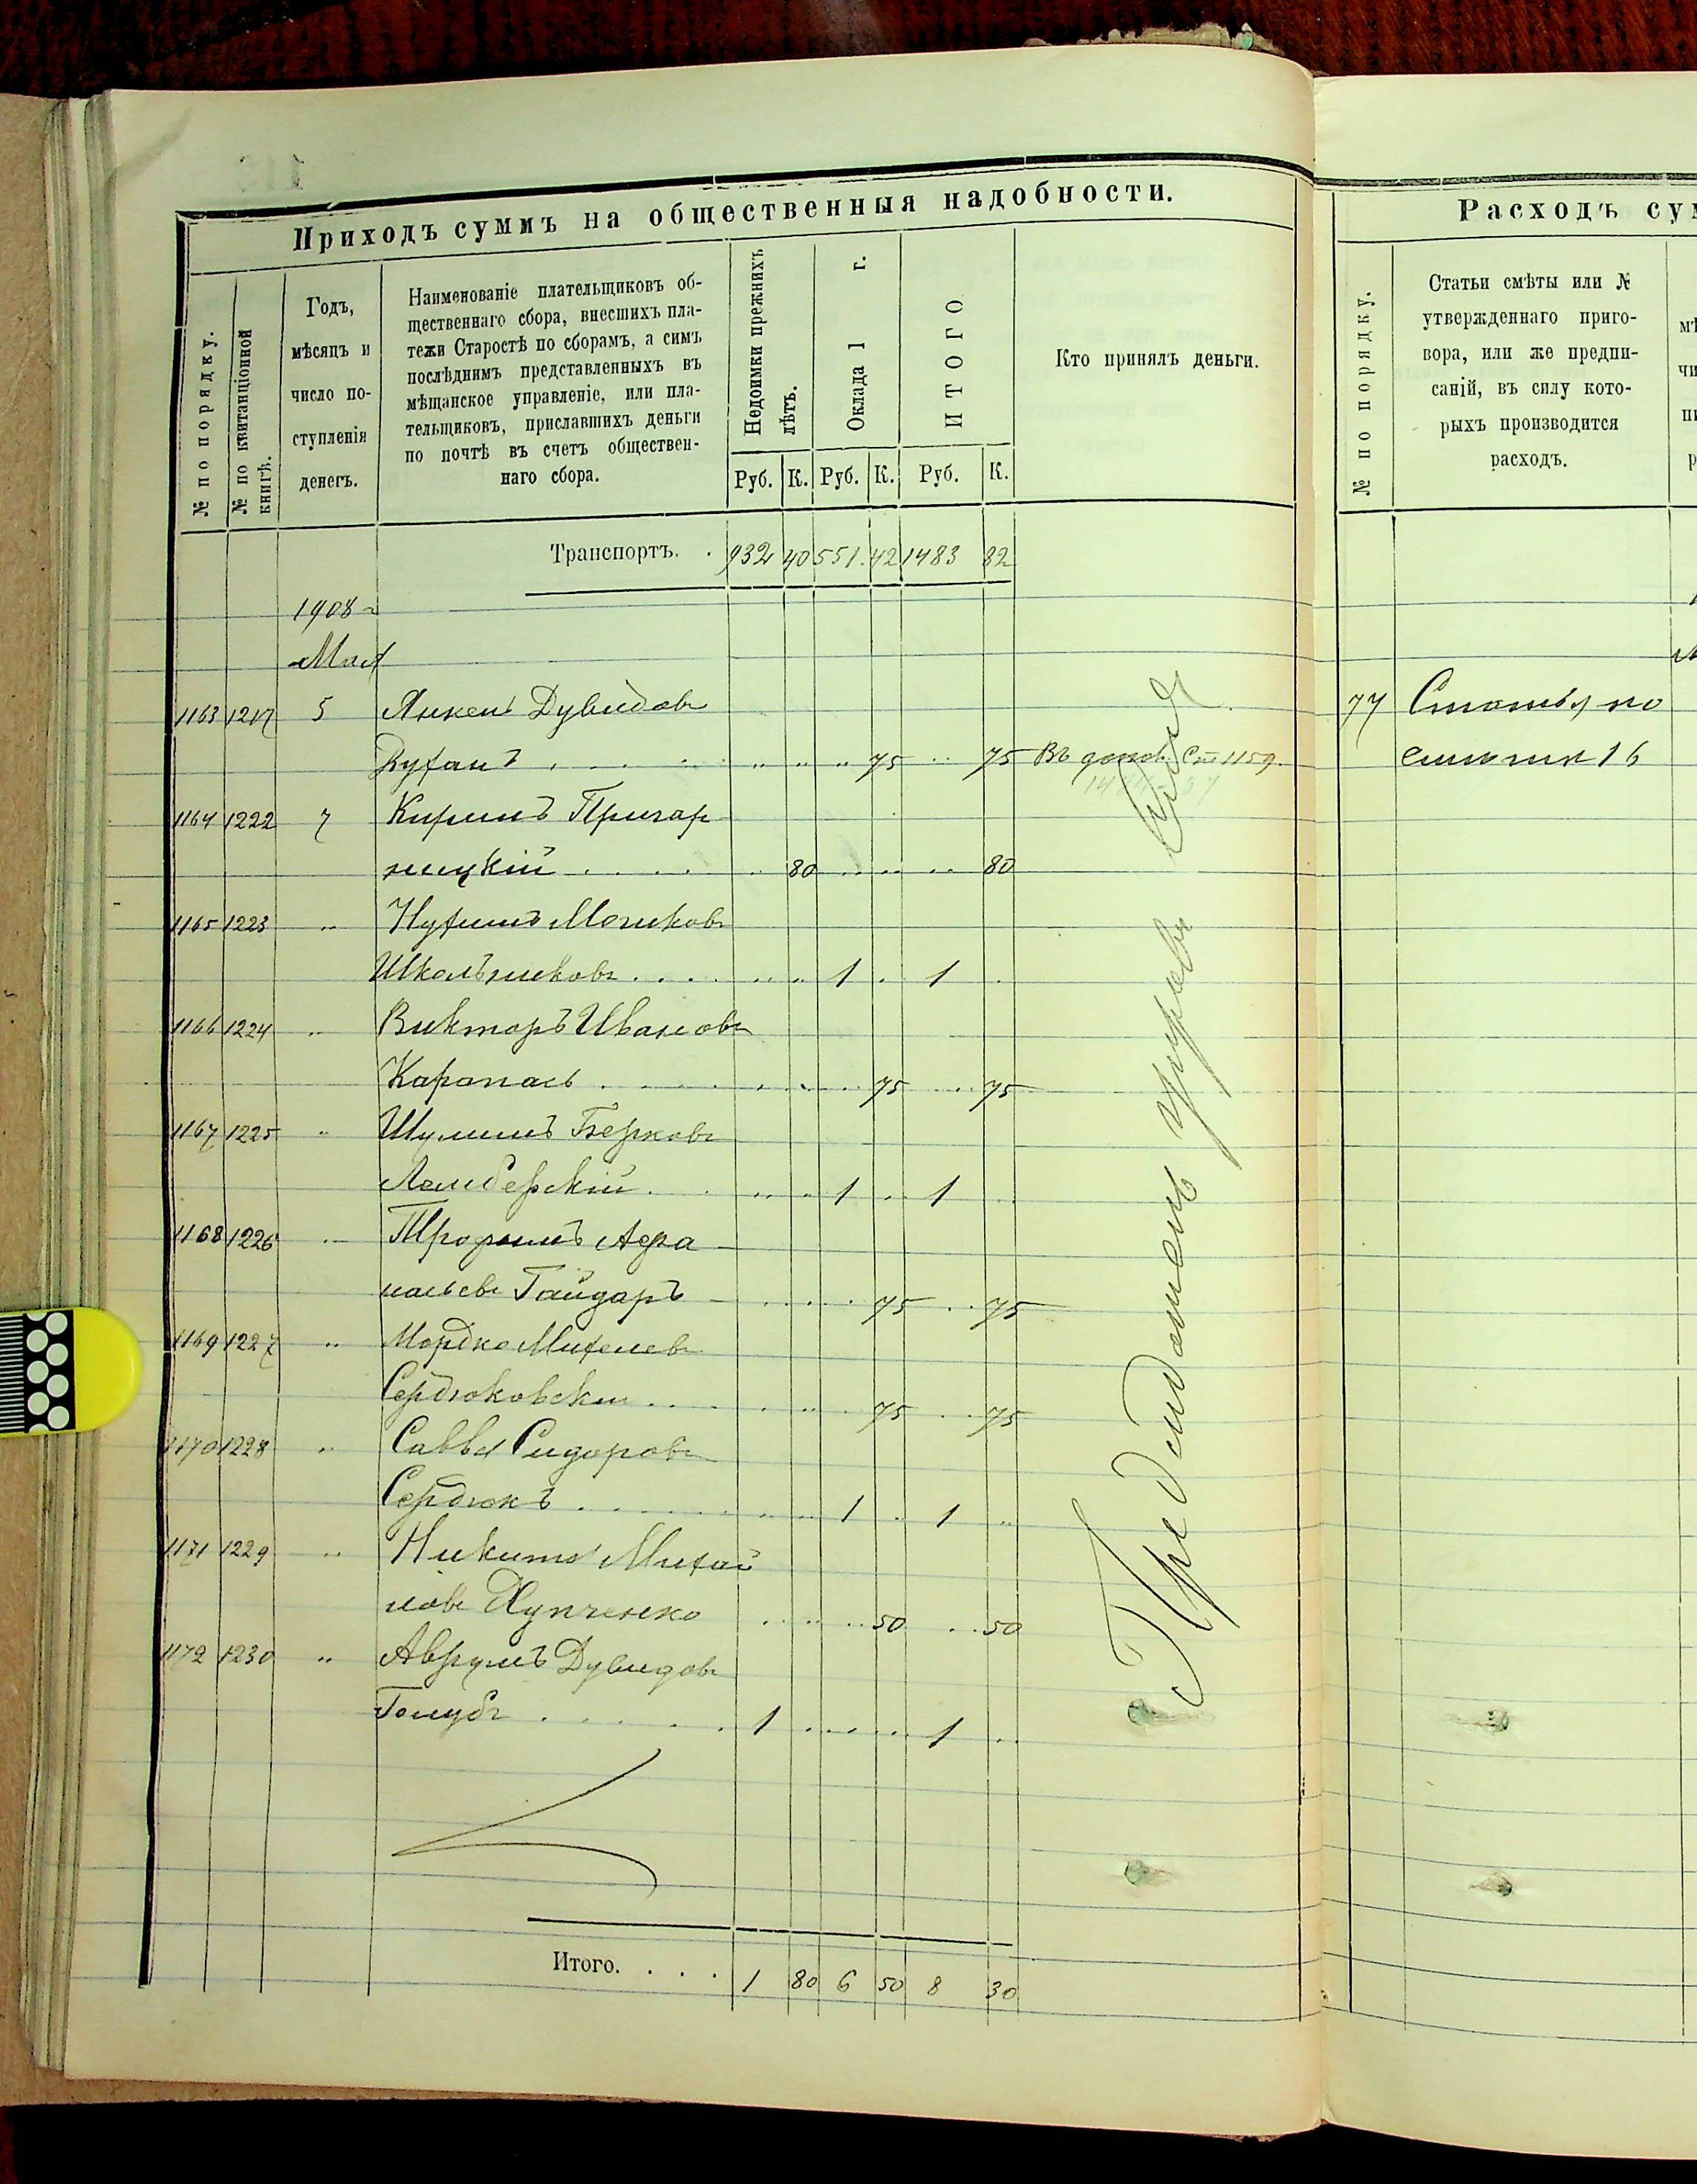 Приходъ суммъ на общественныя надобности.
№ по порядку.
№ по квитанціонной
книгѣ.
Годъ,
мѣсяцъ и
число по-
ступленія
денегъ.
Наименованіе плательщиковъ об-
щественнаго сбора, внесшихъ пла-
тежи Старостѣ по сборамъ, а симъ
послѣднимъ представленныхъ въ
мѣщанское управленіе, или пла-
тельщиковъ, приславшихъ деньги
по почтѣ въ счетъ обществен-
наго сбора.
Недоимки прежнихъ
лѣтъ.
Оклада 1 г.
ИТОГО
Руб. К. Руб. К. Руб. К.
Кто принялъ деньги.
Транспортъ. . 932 40 551 42 1483 82
1908 г
Мая
1163 1217 5 Янкель Дувидовъ
75 75 Въ допол. Ст 1159.
1164 1222 7
ницкій 80 80
1165 1223 " Нухимъ Мошковъ
Школьниковъ 1 1
1166 1224 " Викторъ Ивановъ
Карапась 75 75
1167 1225 " Шулимъ Берковъ
1 1
1168 1226 " Трофимъ Афа
насьевъ Гайдаръ 75 75
1169 1227 " Мордко Михелевъ
Сердюковскій 75 75
1170 1228 " Савва Сидоровъ
Сердюкъ 1 1
1171 1229 " Никита Михай
ловъ Хупченко 50 50
1172 1230 " Аврумъ Дувидовъ
Голубъ 1 1
Итого. . . . 1 80 6 50 8 30
Расходъ сум
№ по порядку.
Статьи смѣты или №
утвержденнаго приго-
вора, или же предпи-
саній, въ силу кото-
рыхъ производится
расходъ.
77 Статья по
16